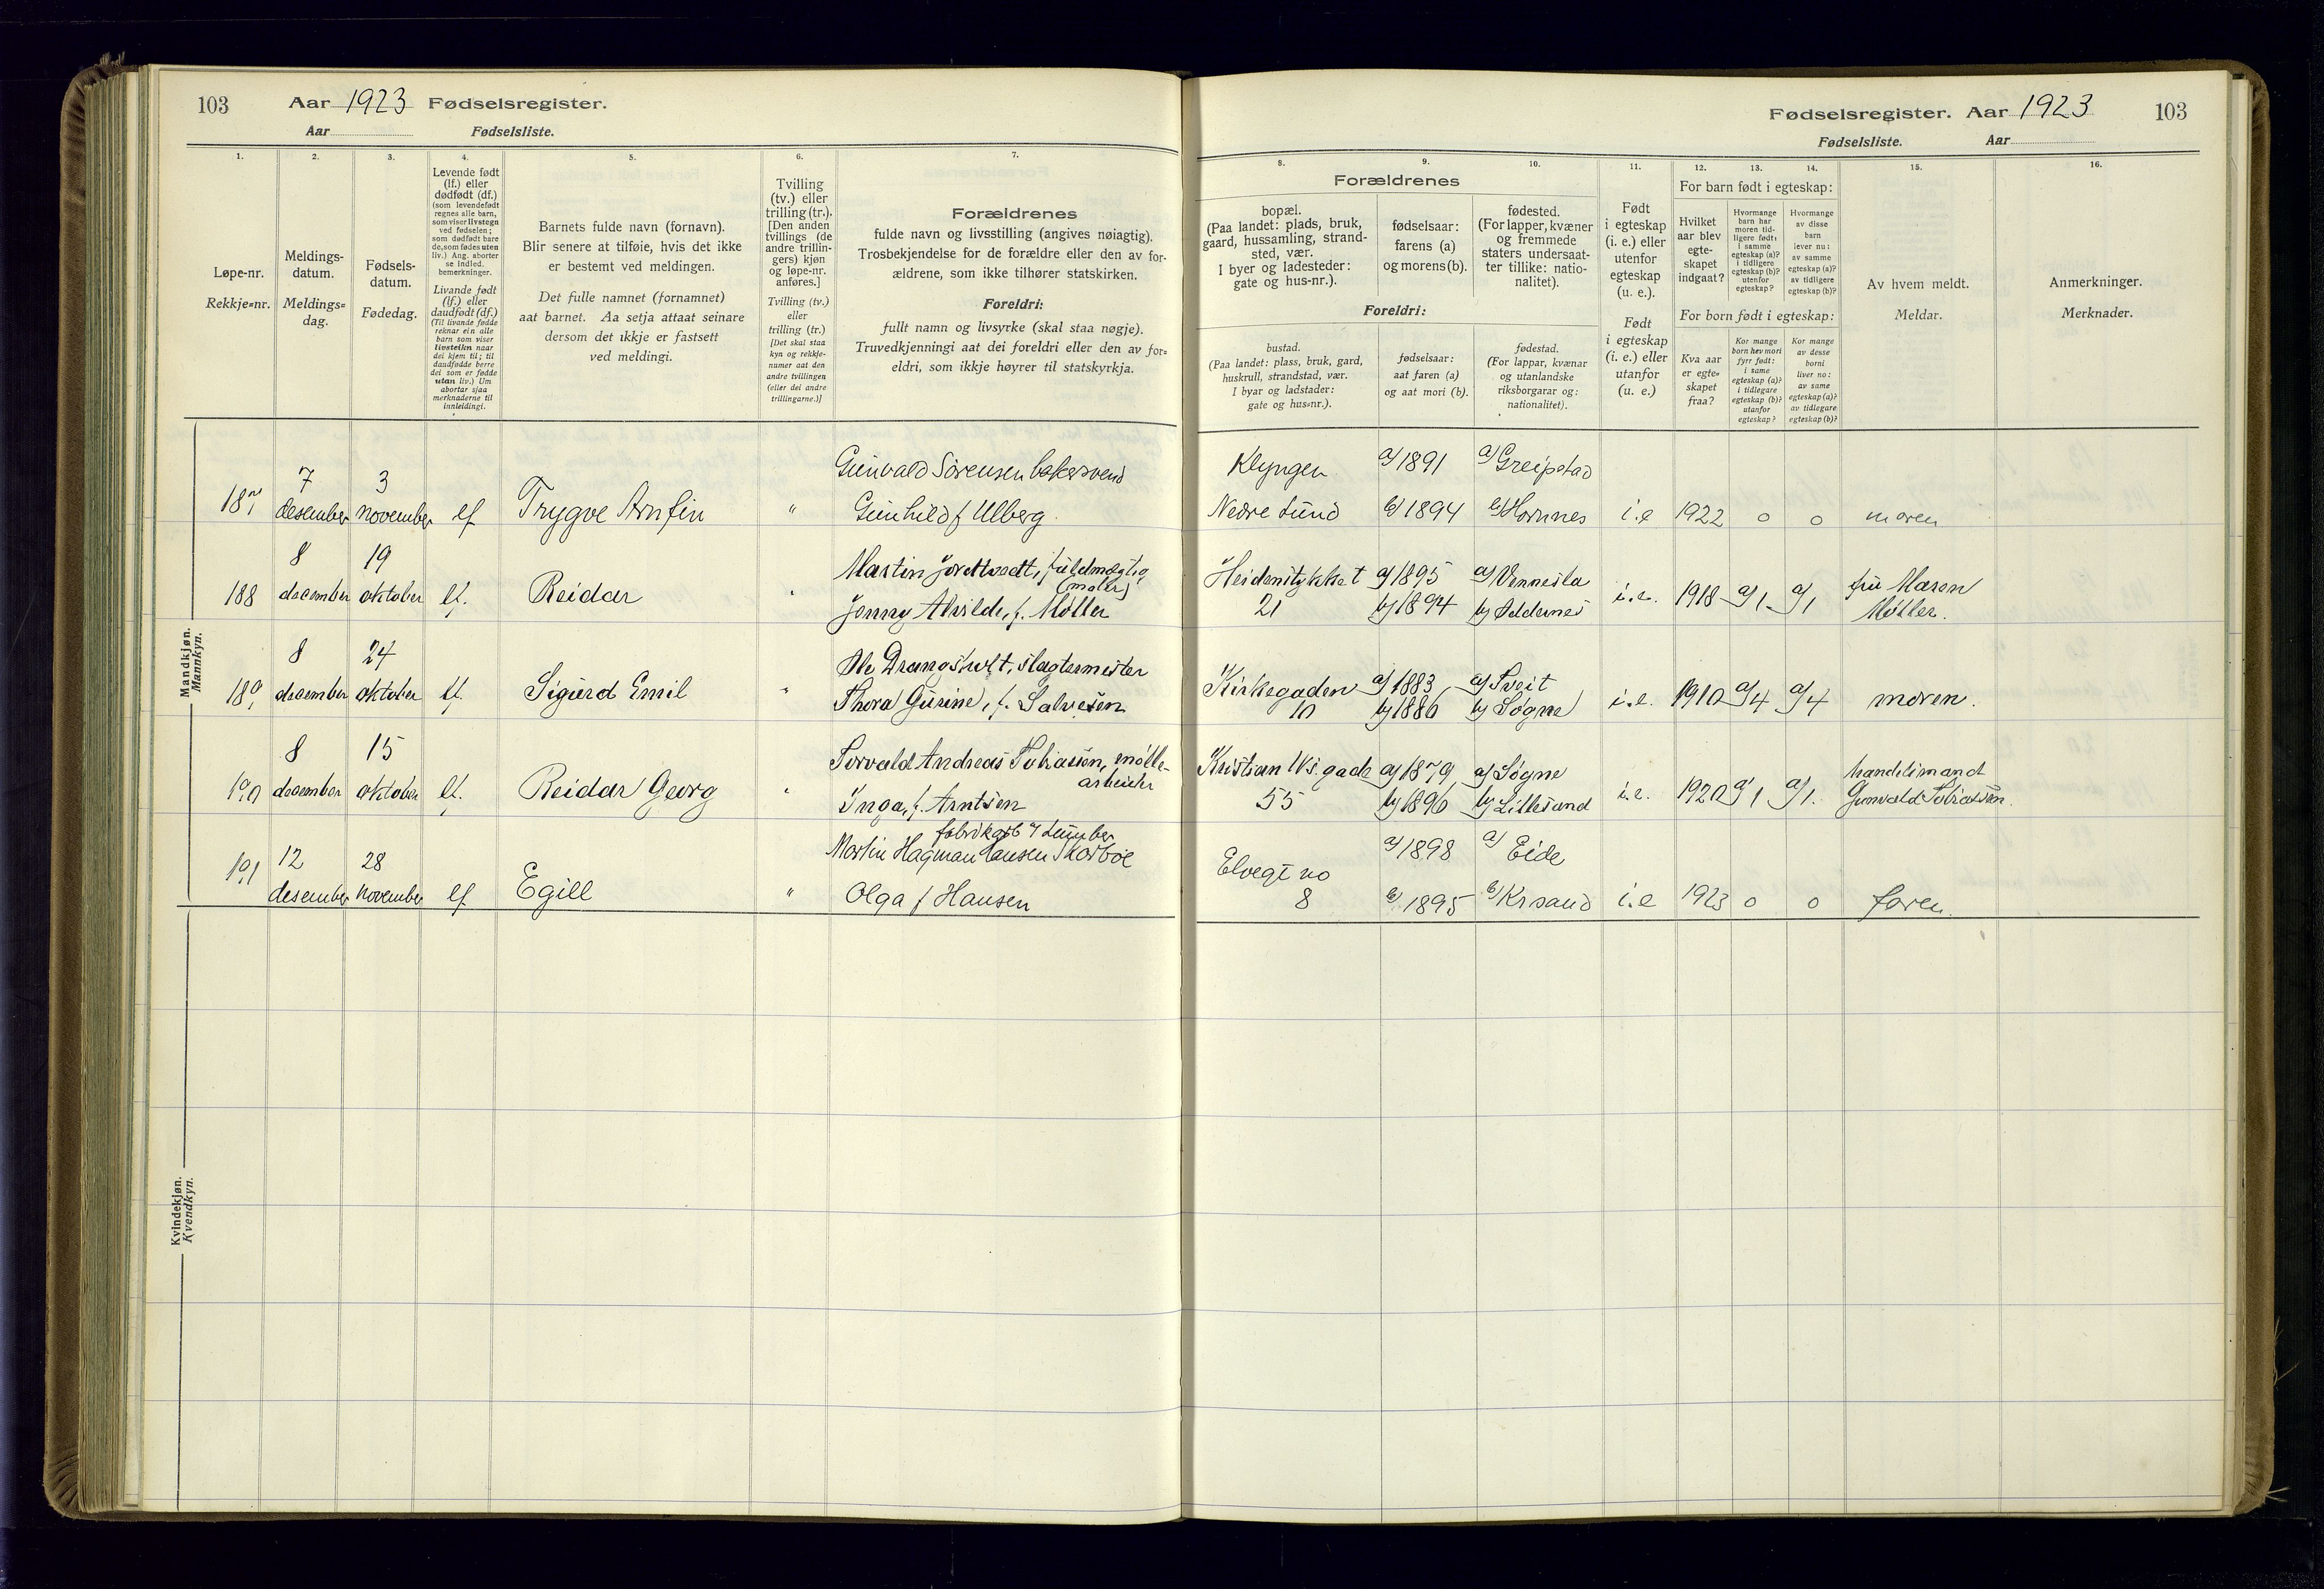 103
Aar 1923 Fødselsregister.
Aar Fødselsliste.
Fødselsregister. Aar 1923 103
Fødselsliste. Aar
1. 2. 3. 4. 5. 6. 7.
Løpe-nr.
Rekkje=nr.
Meldings-
datum.
Meldings=
dag.
Fødsels-
datum.
Fødedag.
Levende født
(lf.) eller
dødfødt (df.)
(som levendefødt
regnes alle barn,
som viser livstegn
ved fødselen;
som dødfødt bare
de, som fødes uten
liv.) Ang. aborter
se indled.
bemerkninger.
Livande født
(lf.) eller
daudfødt (df.)
(Til livande fødde
reknar ein alle
barn som viser
livsteikn naar
dei kjem til; til
daudfødde berre
dei som er fødde
utan liv.) Um
abortar sjaa
merknaderne til
innleidingi.
Barnets fulde navn (fornavn).
Blir senere at tilføie, hvis det ikke
er bestemt ved meldingen.
Det fulle namnet (fornamnet)
aat barnet. Aa setja attaat seinare
dersom det ikkje er fastsett
ved meldingi.
Tvilling
(tv.) eller
trilling (tr.).
[Den anden
tvillings (de
andre trillin-
gers) kjøn
og løpe-nr.
anføres.]
Tvilling (tv.)
eller
trilling (tr.)
[Det skal staa
kyn og rekkje-
numer aat den
andre tvillingen
(eller dei andre
trillingarne.)]
Forældrenes
fulde navn og livsstilling (angives nøiagtig).
Trosbekjendelse for de forældre eller den av for-
ældrene, som ikke tilhører statskirken.
Foreldri:
fullt namn og livsyrke (skal staa nøgje).
Truvedkjenningi aat dei foreldri eller den av for=
eldri, som ikkje høyrer til statskyrkja.
8. 9. 10. 11. 12. 13. 14. 15. 16.
Forældrenes
bopæl.
(Paa landet: plads, bruk,
gaard, hussamling, strand-
sted, vær.
I byer og ladesteder:
gate og hus-nr.).
fødselsaar:
farens (a)
og morens (b).
fødested.
(For lapper, kvæner
og fremmede
staters undersaat-
ter tillike: natio-
nalitet).
Foreldri:
bustad.
(Paa landet: plass, bruk, gard,
huskrull, strandstad, vær.
I byar og ladstader:
gate og hus=nr.).
fødselsaar:
aat faren (a)
og aat mori (b).
fødestad.
(For lappar, kvænar
og utanlandske
riksborgarar og:
nationalitet).
Født
i egteskap
(i. e.) eller
utenfor
egteskap
(u. e.).
Født
i egteskap
(i. e.) eller
utanfor
(u. e.)
For barn født i egteskap:
Hvilket
aar blev
egte-
skapet
indgaat?
Hvormange
barn har
moren tid-
ligere født:
i samme
egteskap (a)?
i tidligere
egteskap (b)?
utenfor
egteskap?
Hvormange
av disse
barn
lever nu:
av samme
egteskap (a)?
av tidligere
egteskap (b)?
For born født i egteskap:
Kva aar
er egte=
skapet
fraa?
Kor mange
born hev mori
fyrr født:
i same
egteskap (a)?
i tidlegare
egteskap (b)?
utanfor
egteskap?
Kor mange
av desse
borni
liver no:
av same
egteskap (a)?
av tidlegare
egteskap (b)?
Av hvem meldt.
Meldar.
Anmerkninger.
Merknader.
Mandkjøn.
Mannkyn.
187 7 desember 3 november lf Trygve Arnfin " Gunvald Sørensen bakersvend
Gunhild f Ulberg
Klyngen a) 1891 a) Greipstad
Nedre Lund b) 1894 b) Hornnes i.e 1922 o o moren
188 8 december 19 oktober lf. Reidar " Martin Jortveit, fuldmægtig
(maler)
Jenny Alvilde, f. Møller
Heidenstykket a) 1895 a) Vennesla
21 b) 1894 b) Oddernes i.e. 1918 a) 1 a) 1 fru Maren
Møller.
189 8 december 24 oktober lf. Sigurd Emil " Ole Drangsholt, slagtermester
Thora Gurine, f. Salvesen
Kirkegaden a) 1883 a) Tveit
10 b) 1886 b) Søgne i.e. 1910 a) 4 a) 4 moren.
190 8 december 15 oktober lf. Reidar Georg " Torvald Andreas Tobiassen, mølle-
arbeider
Inga, f. Arntsen
Kristian IVs. gade a) 1879 a) Søgne
55 b) 1896 b) Lillesand i.e. 1920 a) 1 a) 1. handelsmand
Gunvald Tobiassen.
191 12 desember 28 november lf Egill " fabrikarb
Martin Hagman Hansen
Olga f Hansen
Elvegt no a) 1898 a) Eide
8 b) 1895 b) Krsand i.e 1923 o o faren.
Kvindekjøn.
Kvendkyn.